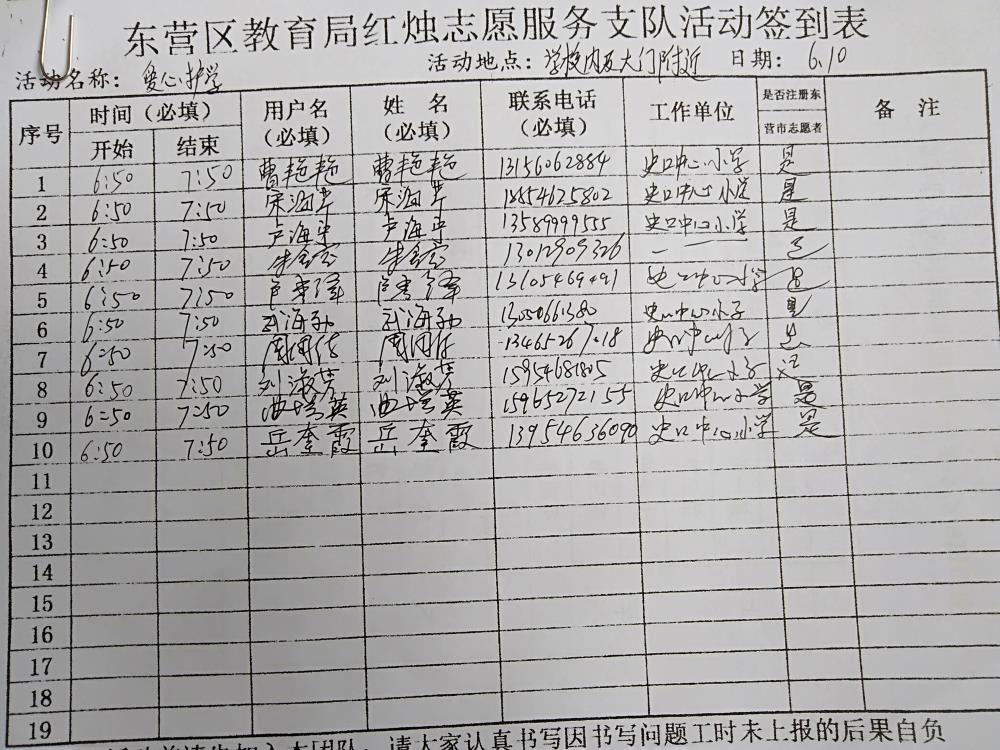 东营区教育局红烛志愿服务支队活动签到表
活动名称：爱心护学 活动地点：学校内及大门附近 日期：6.10
序号 时间（必填） 用户名（必填） 姓名（必填） 联系电话（必填） 工作单位 是否注册东营市志愿者 备注
开始 结束
1 6:50 7:50 曹艳艳 曹艳艳 13156062884 史口中心小学 是
2 6:50 7:50 宋海芹 宋海芹 18854625802 史口中心小学 是
3 6:50 7:50 卢海中 卢海中 13589999555 史口中心小学 是
4 6:50 7:50 13012909326
5 6:50 7:50 史口中心小学 是
6 6:50 7:50 13050661380 史口中心小学 是
7 6:50 7:50 史口中心小学
8 6:50 7:50 刘淑芳 刘淑芳 15954681805 史口中心小学
9 6:50 7:50 曲培英 曲培英 15965272155 史口中心小学 是
10 6:50 7:50 岳奎霞 岳奎霞 13954636090 史口中心小学 是
11
12
13
14
15
16
17
18
19
请大家认真书写因书写问题工时未上报的后果自负